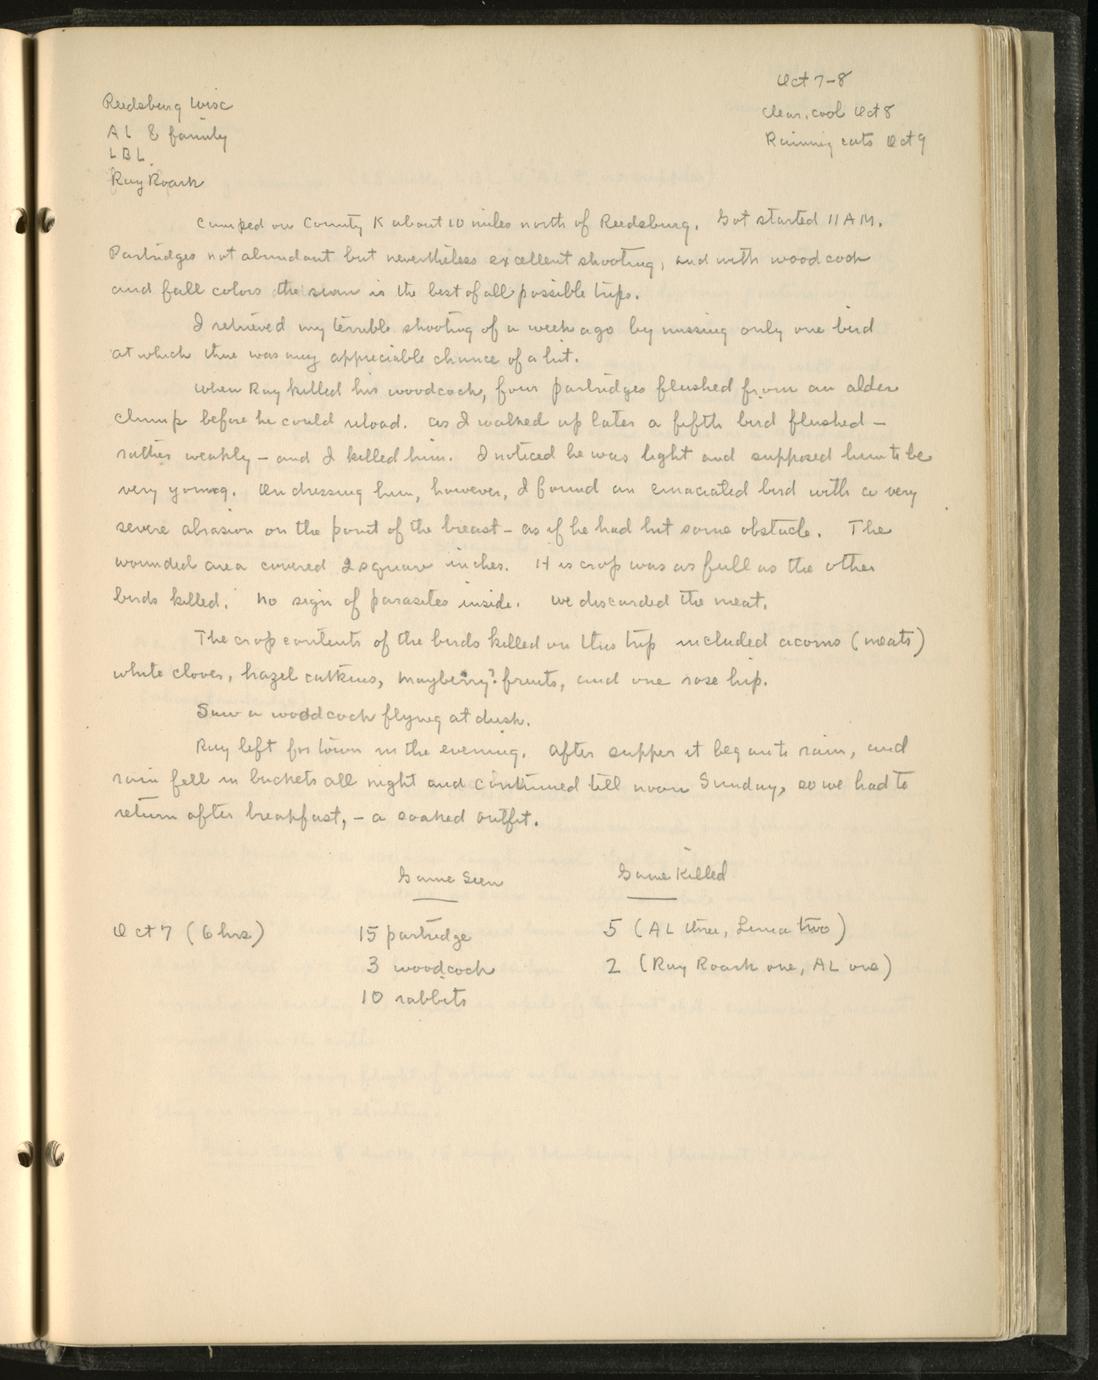 Oct 7-8
Reedsburg Wisc
clear, cool Oct 8
AL & family
Raining cats Oct 9
LBL.
Ray Roark
Camped on County K about 10 miles north of Reedsburg. Got started 11 AM.
Partridges not abundant but nevertheless excellent shooting, and with woodcock
and fall colors the swan is the best of all possible trips.
I retrieved my terrible shooting of a week ago by missing only one bird
at which there was any appreciable chance of a hit.
When Ray killed his woodcock, four partridges flushed from an alder
clump before he could reload. As I walked up later a fifth bird flushed -
rather weakly - and I killed him. I noticed he was light and supposed him to be
very young. On dressing him, however, I found an emaciated bird with a very
severe abrasion on the point of the breast - as if he had hit some obstacle. The
wounded area covered 2 square inches. His crop was as full as the other
birds killed. No sign of parasites inside. We discarded the meat.
The crop contents of the birds killed on this trip included acorns (meats)
white clover, hazel catkins, mayberry? fruits, and one rose hip.
Saw a woodcock flying at dusk.
Ray left for town in the evening. After supper it began to rain, and
rain fell in buckets all night and continued till noon Sunday, so we had to
return after breakfast, - a soaked outfit.
Game Seen Game Killed
Oct 7 (6 hrs) 15 partridge 5 (AL three, Luna two)
3 woodcock 2 (Ray Roark one, AL one)
10 rabbits